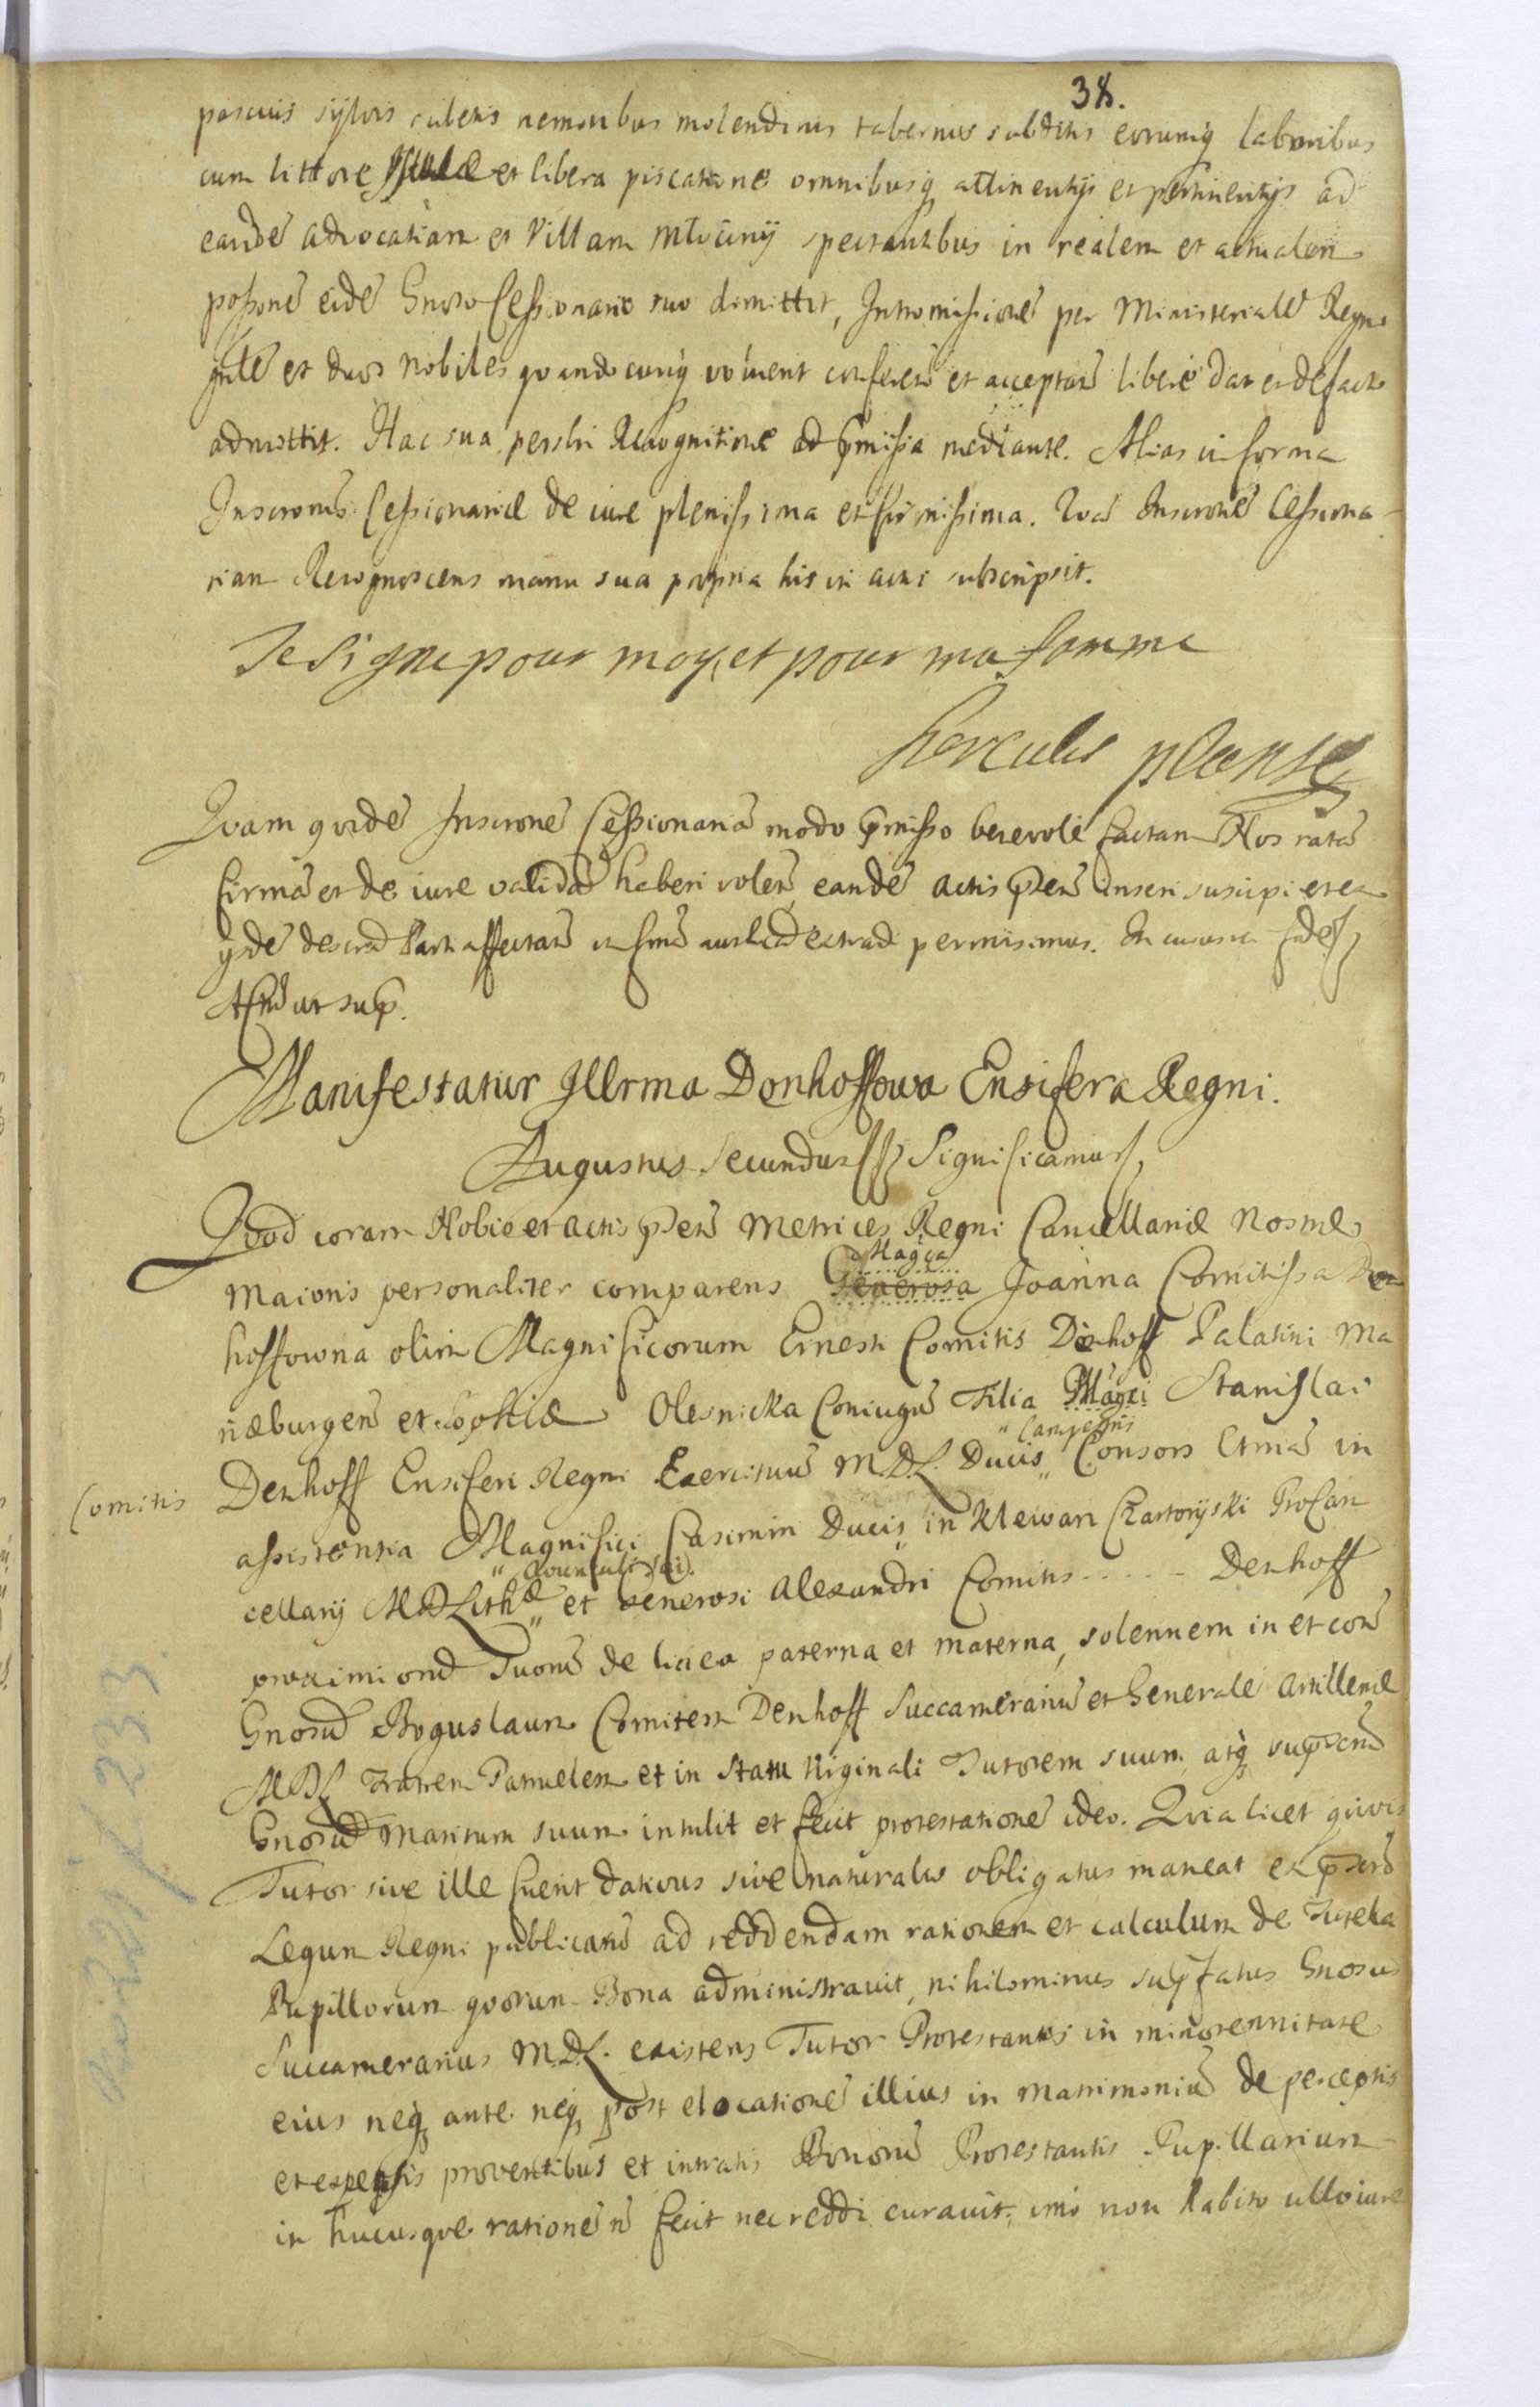 38.
pascuis sylvis rubetis nemoribus molendinis tabernis subditis eorumq laboribus
cum littore et libera piscatione omnibusq attinentijs et pertinentijs ad
eande advocatiam et Villam Mlociny spectantibus in realem et actualem
possone eide Gnoso Cessionario suo dimittit, Intromissione per Ministeriale Regni
gnle et duos Nobiles quandocunq voluerit conferen et acceptan libere dat et de facto
admittit. Hac sua pershi Recognitione ad pmissa mediante. Alias in forma
Inscronis Cessionariæ de iure plenissima et firmissima. Qua Inscrone Cessiona-
riam Recognoscens manu sua propria his in actis subscripsit.
Je Signe pour moy, et pour ma famme
hercules
Quam quide Inscrone Cessionaria modo pmisso benevole factam Nos rata
firma et de iure valida haberi volen, eande actis pten inseri suscipi et ex
ijsde descrad Parti affectan in fma extrad permisimus. In cuius rei fide
Actu ut sup.
Manifestatur Illrma Donhoffowa Ensifera Regni.
Augustus Secundus Significamus
Quod coram Nobis et actis pten Metrices Regni Cancellariæ Nostræ
Magca
Maioris personaliter comparens Generosa Joanna Comitissa Den
hoffowna olim Magnificorum Ernesti Comitis Denhoff Palatini Ma
riæburgen et Sophiæ Olesnicka Coniugu Filia Magci Stanislai
" Campestris
Comitis Denhoff Ensiferi Regni Exercituu M.D.L. Ducis" Consors ltma in
assistentia Magnifici Casimiri Ducis in Klewan Czartoryski ProCan
cellarij M.D.Lithæ" et Generosi Alexandri Comitis ..... Denhoff
proximiond Suone de linea paterna et materna, solennem in et con
Gnosu Boguslaum Comitem Denhoff Succamerariu et Generale Artilleriæ
M.D.L. Fratrem Patruelem et in Statu Virginali Tutorem suum atq
Gnosu Maritum suum intulit et fecit protestatione ideo. Quia licet quivis
Tutor sive ille fuerit dativus sive naturalis obligatus maneat ex
Legum Regni publicaru ad reddendam rationem et calculum de Tutela
Pupillorum quorum Bona administravit, nihilominus supfatus Gnosus
Succamerarius M.D.L. existens Tutor Protestantis in minorennitate
eius neq ante neq post elocatione illius in Matrimoniu de perceptis
et expensis proventibus et intratis Bonoru Protestantis Pupillarium
in hucusque ratione n fecit nec reddi curavit, imo non habito ullo iure